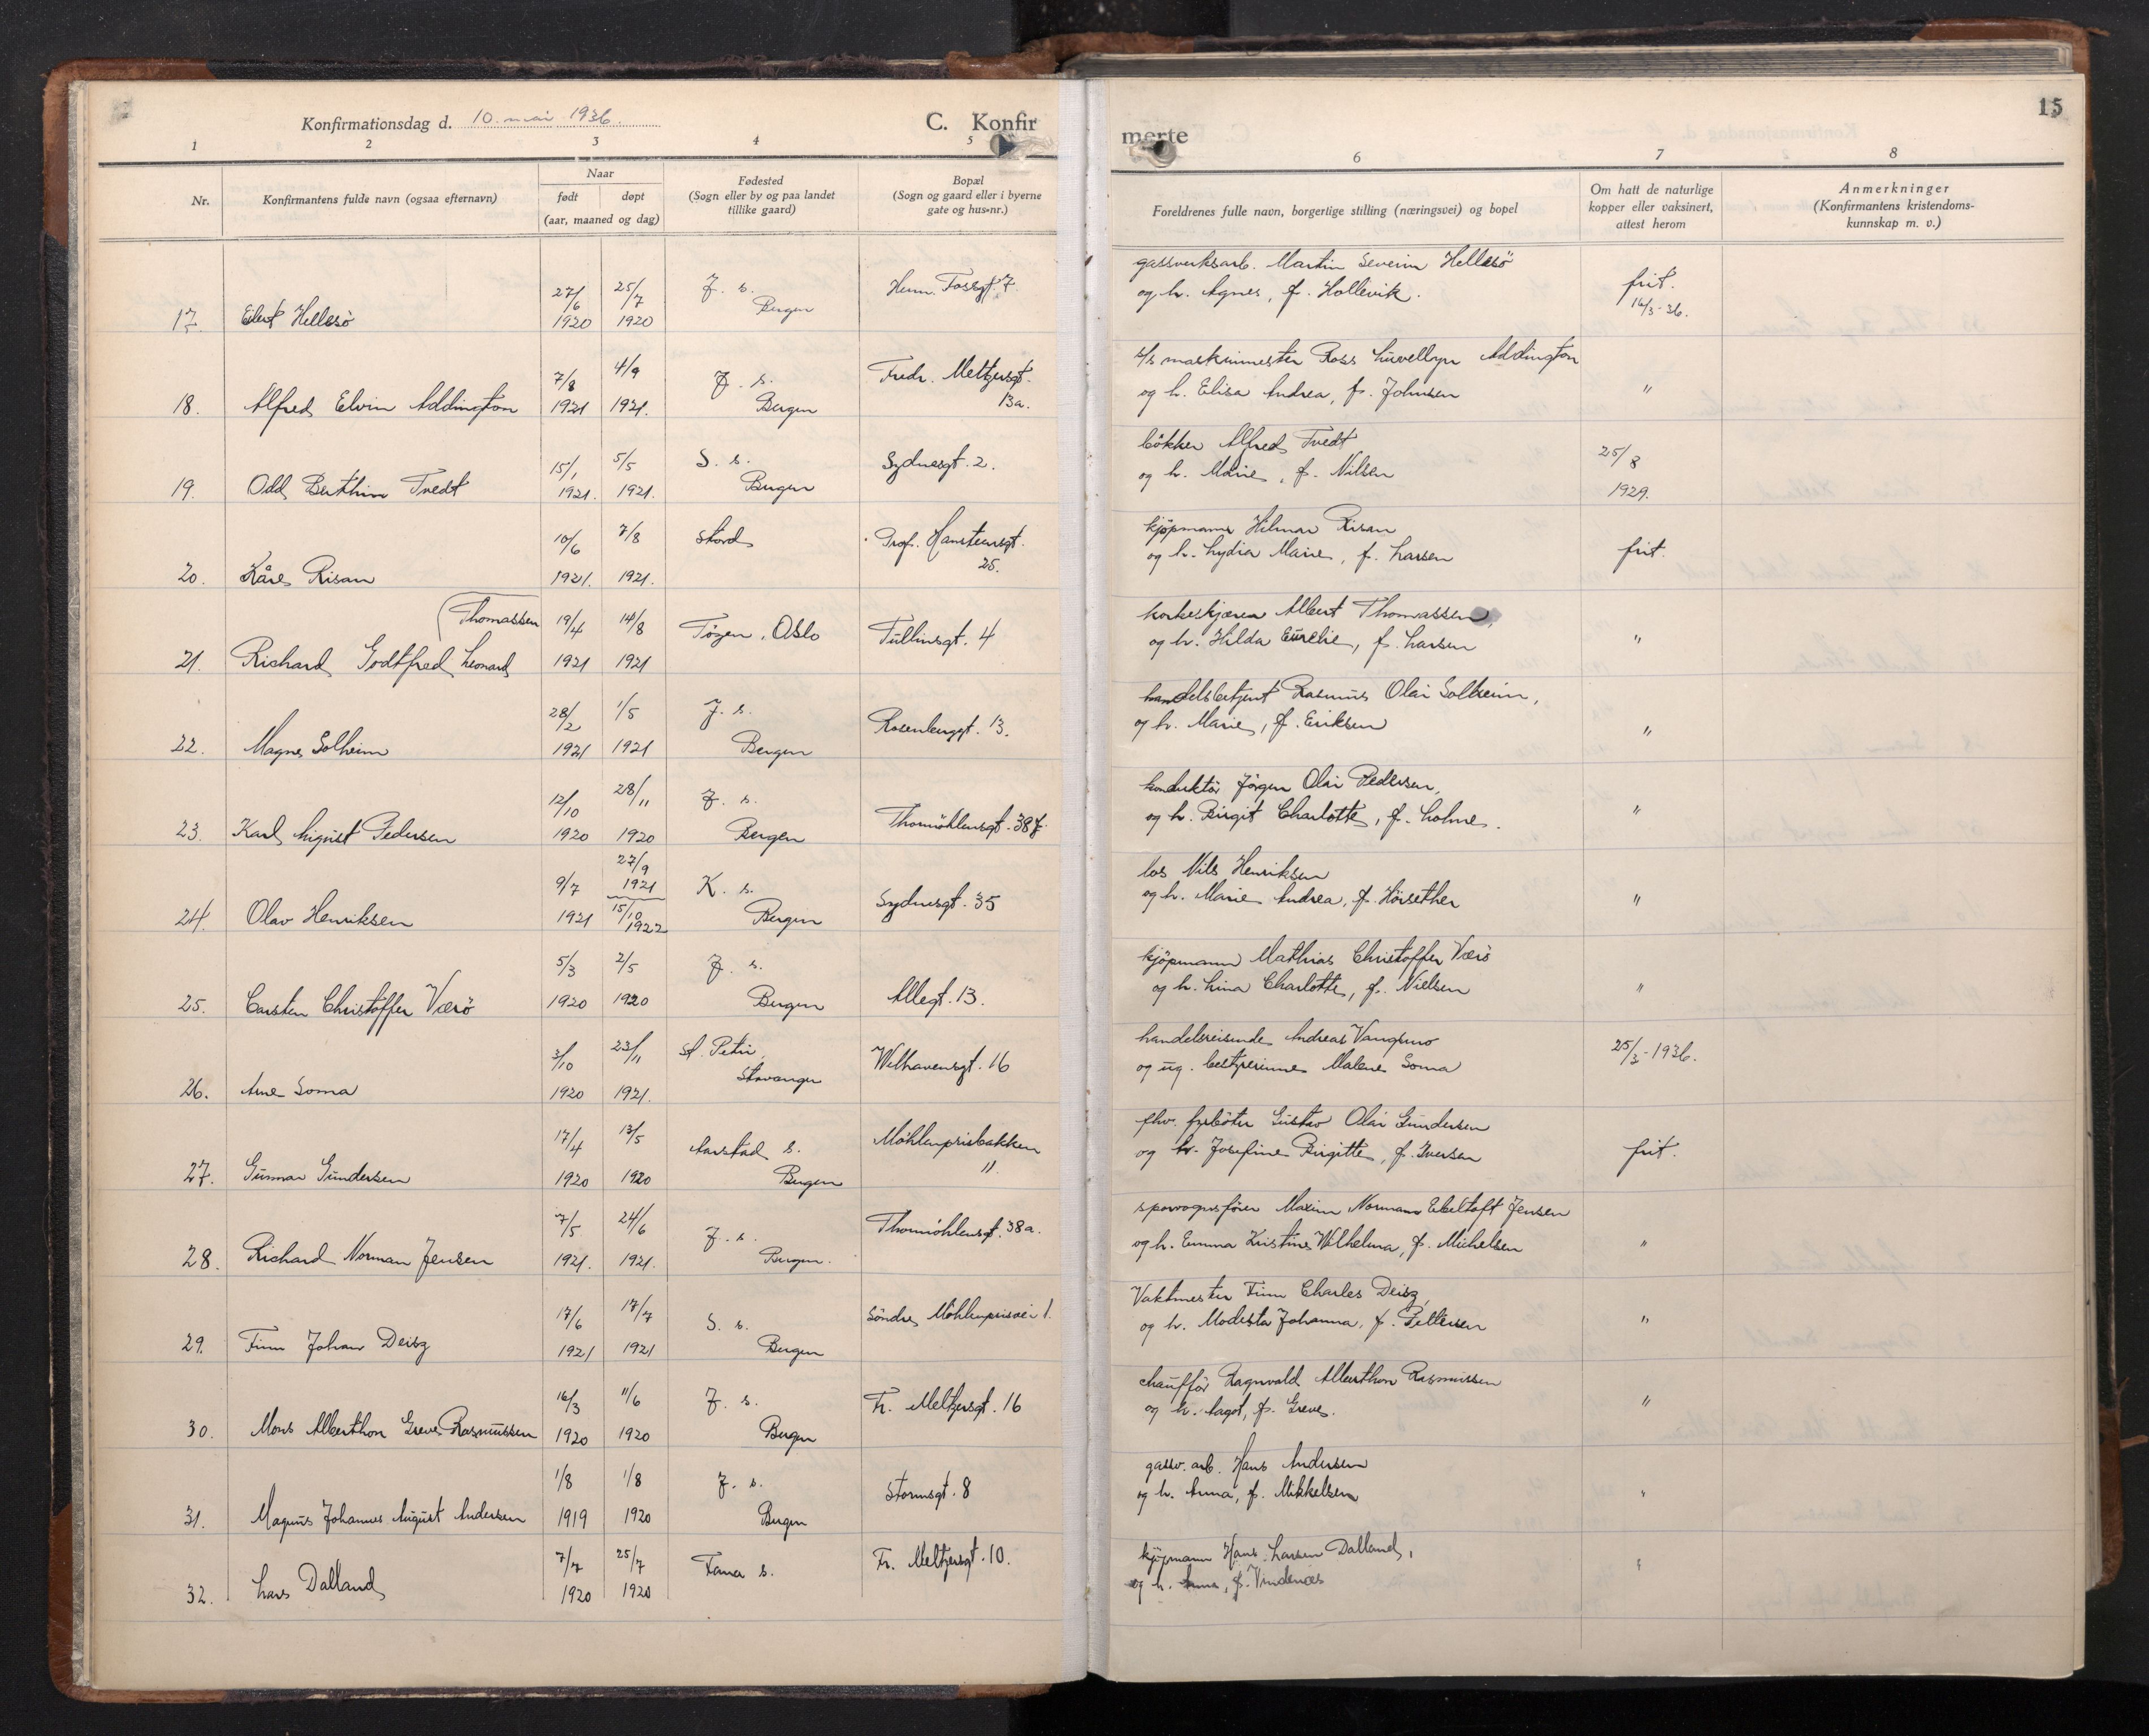 Konfirmationsdag d. 10. mai 1936.
C. Konfirmerte
15
1 2 3 4 5 6 7 8
Nr.
Konfirmantens fulde navn (ogsaa efternavn)
Naar
født
døpt
(aar, maaned og dag)
Fødested
(Sogn eller by og paa landet
tillike gaard)
Bopæl
(Sogn og gaard eller i byerne
gate og hus-nr.)
Foreldrenes fulle navn, borgerlige stilling (næringsvei) og bopel
Om hatt de naturlige
kopper eller vaksinert,
attest herom
Anmerkninger
(Konfirmantens kristendoms-
kunnskap m. v.)
27/6 25/7 J. s. Herm. Fossgt. 7 gassverksarb. Martin Severin Hellesö frit.
17. Eilert Hellesö 1920 1920 Bergen og h. Agnes, f. Hollevik. 16/3-36.
7/8 4/9 J. s. Fredr. Meltzersgt. s/s maskinmester Ross Luvellyn Addington
18. Alfred Elvin Addington 1921 1921. Bergen 13a. og h. Elisa Andrea, f. Johnsen "
15/1 5/5 S. s. Sydnesgt. 2. bökker Alfred Tvedt 25/8
19. Odd Berthin Tvedt 1921. 1921. Bergen og h. Marie, f. Nilsen 1929.
10/6 7/8 Stord Prof. Hansteensgt. kjöpmann Hilmar Risan
20. Kåre Risan 1921. 1921. 25. og h. Lydia Marie, f. Larsen frit.
Thomassen 19/4 14/8 Tøyen, Oslo Tullinsgt. 4 korkeskjærer Albert Thomassen,
21. Richard Godtfred Leonard 1921 1921 og h. Hilda Eurelie, f. Larsen "
28/2 1/5 J. s. Rosenberggt. 13. handelsbetjent Rasmus Olai Solheim,
22. Magne Solheim 1921 1921 Bergen og h. Marie, f. Eriksen "
12/10 28/11 J. s. Thormöhlensgt. 38 f. konduktör Jörgen Olai Pedersen,
23. Karl August Pedersen 1920 1920 Bergen og h. Birgit Charlotte, f. Holme. "
9/7 27/9 1921 K. s. Sydnesgt. 35 los Nils Henriksen
24. Olav Henriksen 1921 15/10 1922 Bergen og h. Marie Andrea, f. Hörsether "
5/3 2/5 J. s. Allegt. 13. kjöpmann Mathias Christoffer Værö
25. Carsten Christoffer Værö 1920 1920 Bergen og h. Lina Charlotte, f. Nielsen "
3/10 23/11 St. Petri, Welhavensgt. 16 handelsreisende Andreas Vangsmo 25/3-1936.
26. Arne Soma 1920 1921. Stavanger og ug. Malene Soma
17/4 13/5 Aarstad s. Möhlenprisbakken fhv. fyrböter Gustav Olai Gundersen
27. Gunnar Gundersen 1920 1920 Bergen 11. og h. Josefine Birgitte, f. Iversen frit.
7/5 24/6 J. s. Thormöhlensgt. 38a. sporvognsförer Maxim Norman Ebeltoft Jensen
28. Richard Norman Jensen 1921. 1921. Bergen. og h. Emma Kristine Wilhelma, f. Michelsen "
17/6 17/7 S. s. Söndre Möhlenprisvei 1. Vaktmester Finn Charles Deisz,
29. Finn Johan Deisz 1921 1921 Bergen og h. Modesta Johanna, f. Pettersen "
16/3 11/6 J. s. Fr. Meltzersgt. 16 chaufför Ragnvald Alberthon Rasmussen
30. Mons Alberthon Greve Rasmussen 1920 1920 Bergen og h. Aagot, f. Greve. "
1/8 1/8 J. s. Stormsgt. 8 gassv. arb. Hans Andersen
31. Magnus Johannes August Andersen 1919 1920 Bergen og h. Anna, f. Mikkelsen "
7/7 25/7 Fana s. Fr. Meltzersgt. 10. kjöpmann Hans Larsen Dalland,
32. Lars Dalland 1920 1920 og h. Anna, f. Vindenes "